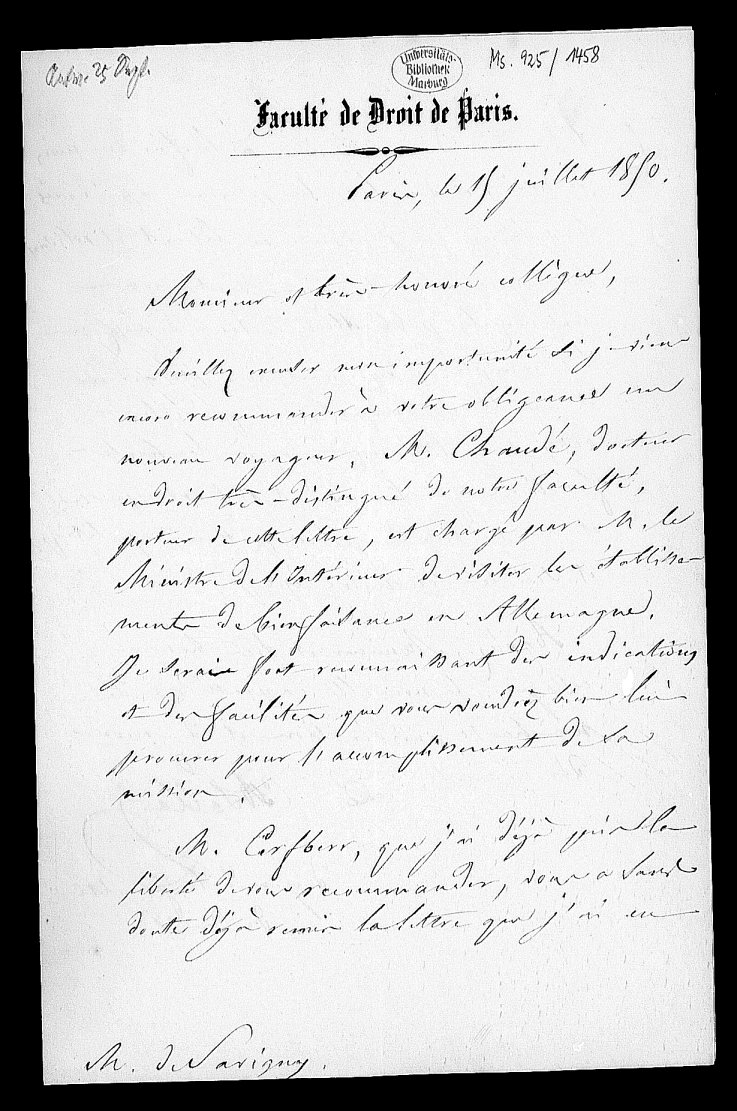 Antw. 25 Sept.
Universitäts-
Bibliothek
Marburg
Ms. 925/1458
Faculté de Droit de Paris.
Paris, le 15 juillet 1850.
Monsieur et très-honoré collègue,
Veuillez excuser mon importunité si je viens
encore recommander à votre obligeance un
nouveau voyageur. M. Chaudé, docteur
en droit très-distingué de notre faculté,
porteur de cette lettre, est chargé par M. le
Ministre de l'Intérieur de visiter les établisse-
ments de bienfaisance en Allemagne.
Je serais fort reconnaissant des indications
et des facilités que vous voudriez bien lui
procurer pour l'accomplissement de sa
mission.
M. Cerfberr, que j'ai déjà pris la
liberté de vous recommander, vous a sans
doute déjà remis la lettre que j'ai eu
M. de Savigny.